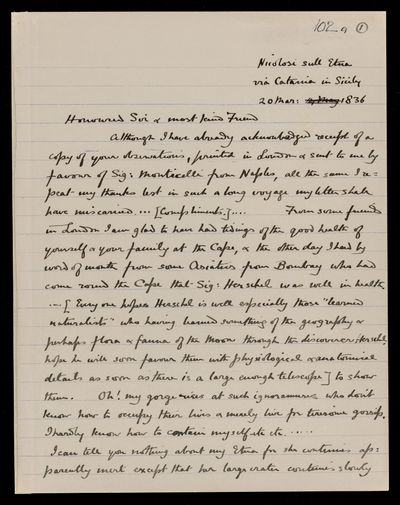 102a ①
Nicolosi sull Etna
via Catania in Sicily
20 Mar: 1836
Honoured Sir & most kind Friend
Although I have already acknowledged receipt of a
copy of your observations, printed in London & sent to me by
favour of Sig: Monticelli from Naples, all the same I re=
peat my thanks lest in such a long voyage my letter shall
have miscarried ... [Compliments] .... From some friends
in London I am glad to have had tidings of the good health of
yourself & your family at the Cape, & the other day I had by
word of mouth from some Asiatics from Bombay who had
come round the Cape that Sig: Herschel was well in health
....[ Every one hopes Herschel is well especially those "learned
naturalists" who having learned something of the geography &
perhaps flora & fauna of the Moon through the discoverer Herschel,
hope he will soon favour them with physiological & anatomical
details as soon as there is a large enough telescope ] to show
them. Oh! my gorge rises at such ignoramuses who don't
know how to occupy their lives & merely live for tiresome gossip.
I hardly know how to contain myself etc etc. .....
I can tell you nothing about my Etna for she continues ap=
parently inert except that her large crater continues slowly